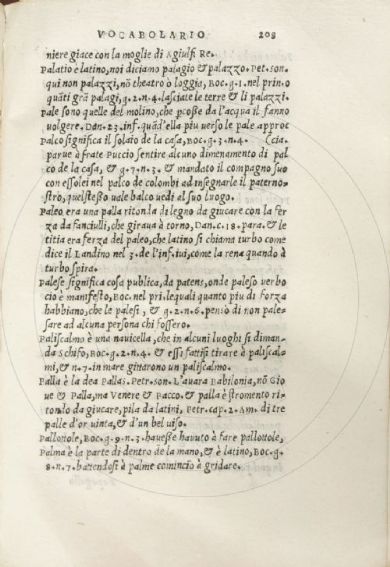 VOCABOLARIO 208
niere giace con la moglie di Agiulfi Re.
Palatio e latino, noi diciamo palagio & palazzo. Pet. son.
qui non palazzi, nõ theatro ò loggia, Boc. g. 1. nel prin. o
quãti grã palagi, g. 2. n. 4. lasciate le terre & li palazzi.
Pale sono quelle del molino, che ꝑcosse da l'acqua il fanno
volgere. Dan. 23. inf. quãd'ella piu verso le pale approc
Palco significa il solaio de la casa, Boc. g. 3. n. 4. (cia.
parue à frate Puccio sentire alcuno dimenamento di pal
co de la casa, & g. 7. n. 3. & mandato il compagno suo
con essolei nel palco de colombi ad insegnarle il paterno-
stro, quel stesso vale balco uedi al suo luogo.
Paleo era una palla ritonda di legno da giucare con la fer
za da fanciulli, che giraua à torno, Dan. c. 18. para. & le
titia era ferza del paleo, che latino si chiama turbo come
dice il Landino nel 3. de l'inf. iui, come la rena quando à
turbo spira.
Palese significa cosa publica, da patens, onde paleso verbo
cio è manifesto, Boc. nel pri. le quali quanto piu di forza
habbiano, che le palesi, & g. 2. n. 6. pensò di non pale-
sare ad alcuna persona chi fossero.
Paliscalmo è una nauicella, che in alcuni luoghi si diman-
da Schifo, Boc. g. 2. n. 4. & essi fattisi tirare è paliscal-
mi, & n. 7. in mare gittarono un paliscalmo.
Palla è la dea Pallas. Petr. son. L'auara Babilonia, nõ Gio
ue & Palla, ma Venere & Bacco. & palla è stromento ri-
tondo da giucare, pila da latini, Petr. cap. 2. Am. di tre
palle d'or uinta, & d'un bel uiso.
Pallottole, Boc. g. 9. n. 3. hauesse hauuto à fare pallottole,
Palma è la parte di dentro de la mano, & è latino, Boc. g.
8. n. 7. battendosi à palme comincio à gridare.